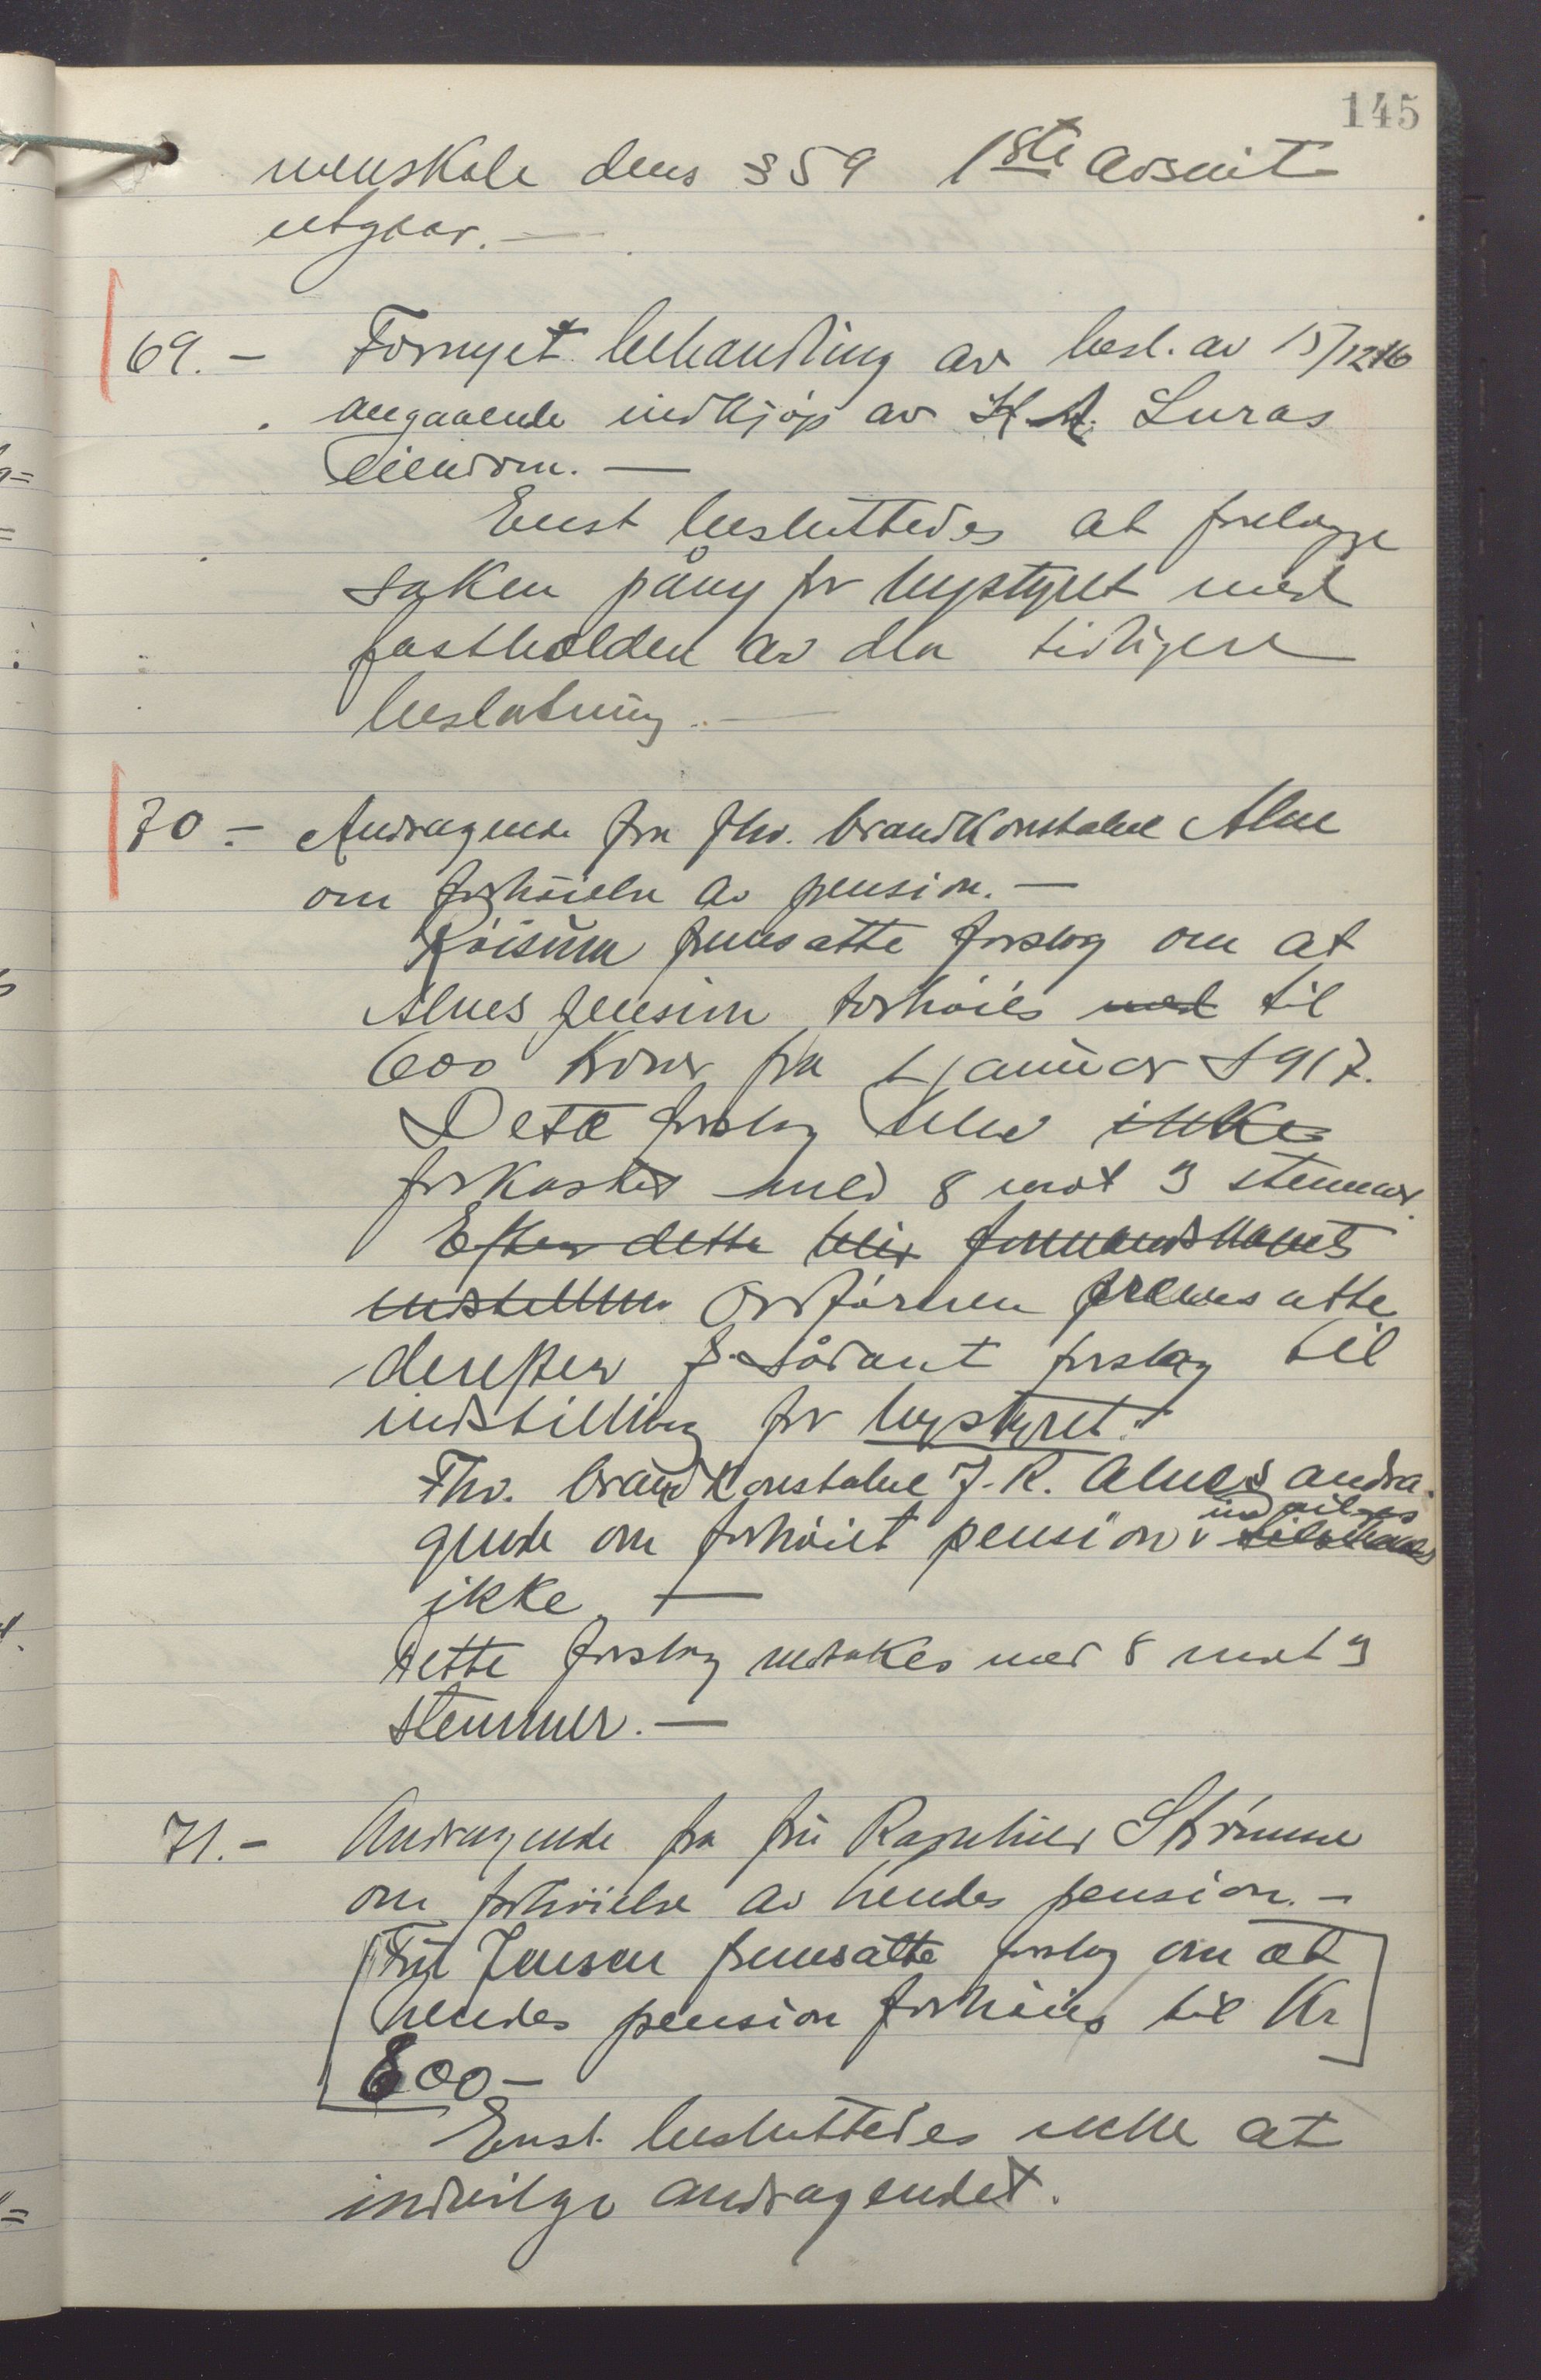 145
menskole dens § 59 1ste avsnit
utgaar. —
69. — Fornyet behandling av besl. av 15/12 16
angaaende indkjøp av K. A. Luras
eiendom. —
Enst besluttedes at forelægge
saken påny for bystyret med
fastholden av den tidligere
beslutning. —
70 — Andragende fra fhv. brandkonstabel Alne
om forhöielse av pension. —
Röisum fremsatte forslag om at
Alnes pension forhöies med til
600 Kroner fra 1 januar 1917.
Dette forslag blev ikke
forkastet med 8 mot 3 stemmer.
Efter dette blir formandskapets
indstilling Ordföreren fremsatte
derefter sådant forslag til
indstilling for bystyret:
Fhv. brandkonstabel J. R. Alnes andra-
gende om forhöiet pension indvilges
ikke. —
Dette forslag vedtakes med 8 mot 3
stemmer. —
71. — Andragende fra fru Ragnhild Strømme
om forhöielse av hendes pension. —
Fru Jensen fremsatte forslag om at
hendes pension forhöies til Kr
800 —
Enst. besluttedes ikke at
indvilge andragendet.